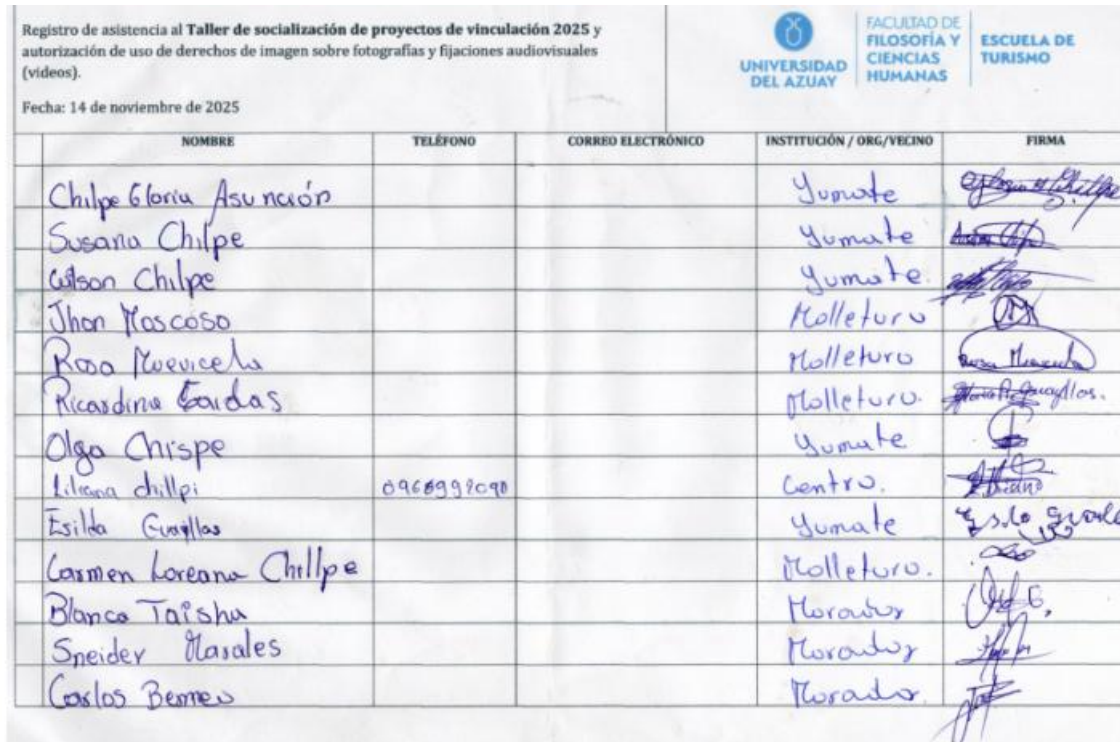 Registro de asistencia al Taller de socialización de proyectos de vinculación 2025 y
autorización de uso de derechos de imagen sobre fotografías y fijaciones audiovisuales
(videos).
Fecha: 14 de noviembre de 2025
UNIVERSIDAD
DEL AZUAY
FACULTAD DE
FILOSOFÍA Y
CIENCIAS
HUMANAS
ESCUELA DE
TURISMO
NOMBRE TELÉFONO CORREO ELECTRÓNICO INSTITUCIÓN / ORG/VECINO FIRMA
Chilpe Gloria Asunción Yumate
Susana Chilpe Yumate
Wilson Chilpe Yumate.
Jhon Moscoso Molleturo
Rosa Molleturo
Ricardina Molleturo.
Olga Chispe Yumate
Liliana chillpi Centro.
Esilda Guayllas Yumate
Carmen Loreana Chillpe Molleturo.
Blanca Taisha Morador
Sneider Morales Morador
Carlos Bermeo Morador